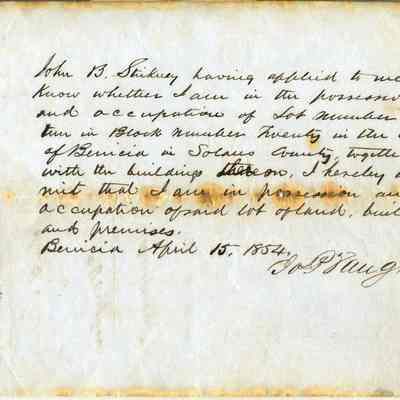 John B. Stickney having applied to me
know whether I am in the possess
and occupation of Lot Number
in Block Number Twenty in the
of Benicia in Solano County, togeth
with the buildings thereon, I hereby a
mit that I am in possession an
occupation of said lot of land, buil
and premises.
Benicia April 15, 1854.